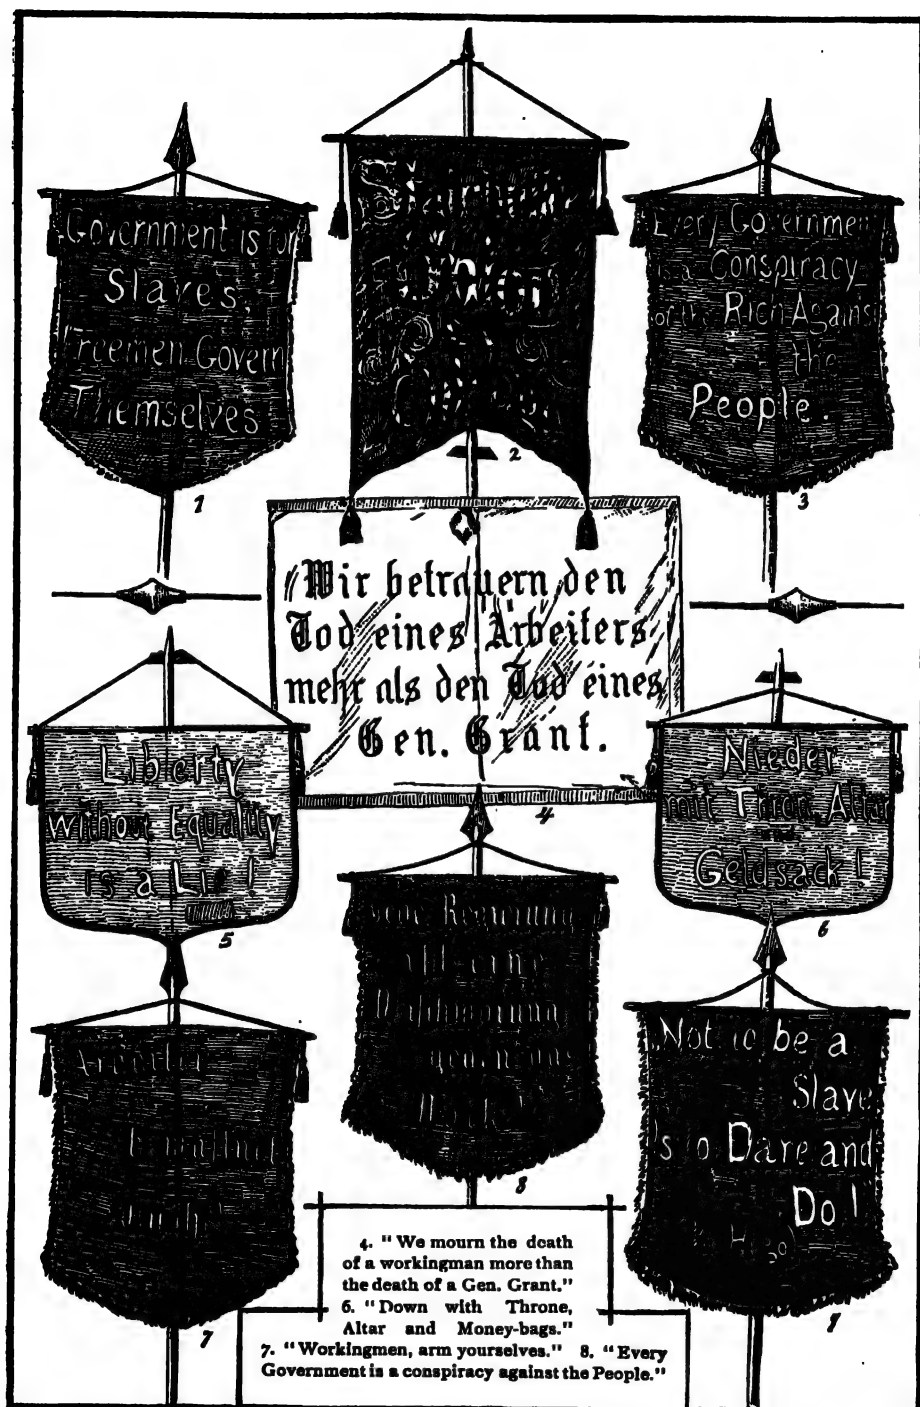 Government is for
Slaves
Freemen Govern
Themselves
1
2
Every Government
is a Conspiracy
of the Rich Against
the
People.
3
Wir betrauern den
Tod eines Arbeiters
mehr als den Tod eines
Gen. Grant.
4
Liberty
without Equality
is a Lie!
5
Nieder
mit Thron, Altar
und
Geldsack!
6
Regierung
ist eine
gegen das
Volk
8
7
Not to be a
Slave
Is to Dare and
Do!
Hugo
9
4. "We mourn the death
of a workingman more than
the death of a Gen. Grant."
6. "Down with Throne,
Altar and Money-bags."
7. "Workingmen, arm yourselves." 8. "Every
Government is a conspiracy against the People."